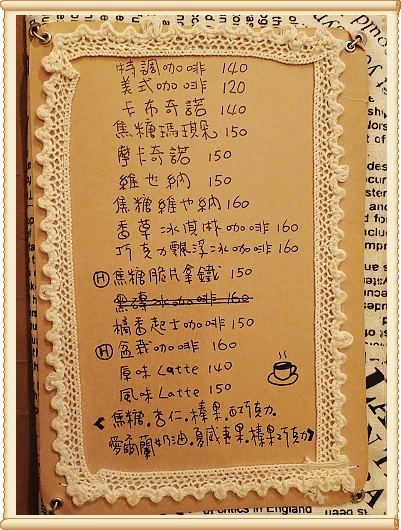 特調咖啡 140
美式咖啡 120
卡布奇諾 140
焦糖瑪琪朵 150
摩卡奇諾 150
維也納 150
焦糖維也納 160
香草冰淇淋咖啡 160
巧克力飄浮冰咖啡 160
Ⓗ焦糖脆片拿鐵 150
黑磚冰咖啡 160
橘香起士咖啡 150
Ⓗ盆栽咖啡 160
原味Latte 140
風味Latte 150
<焦糖.杏仁.榛果.白巧克力.
愛爾蘭奶油.夏威夷果.榛果巧克力>
of critics in England